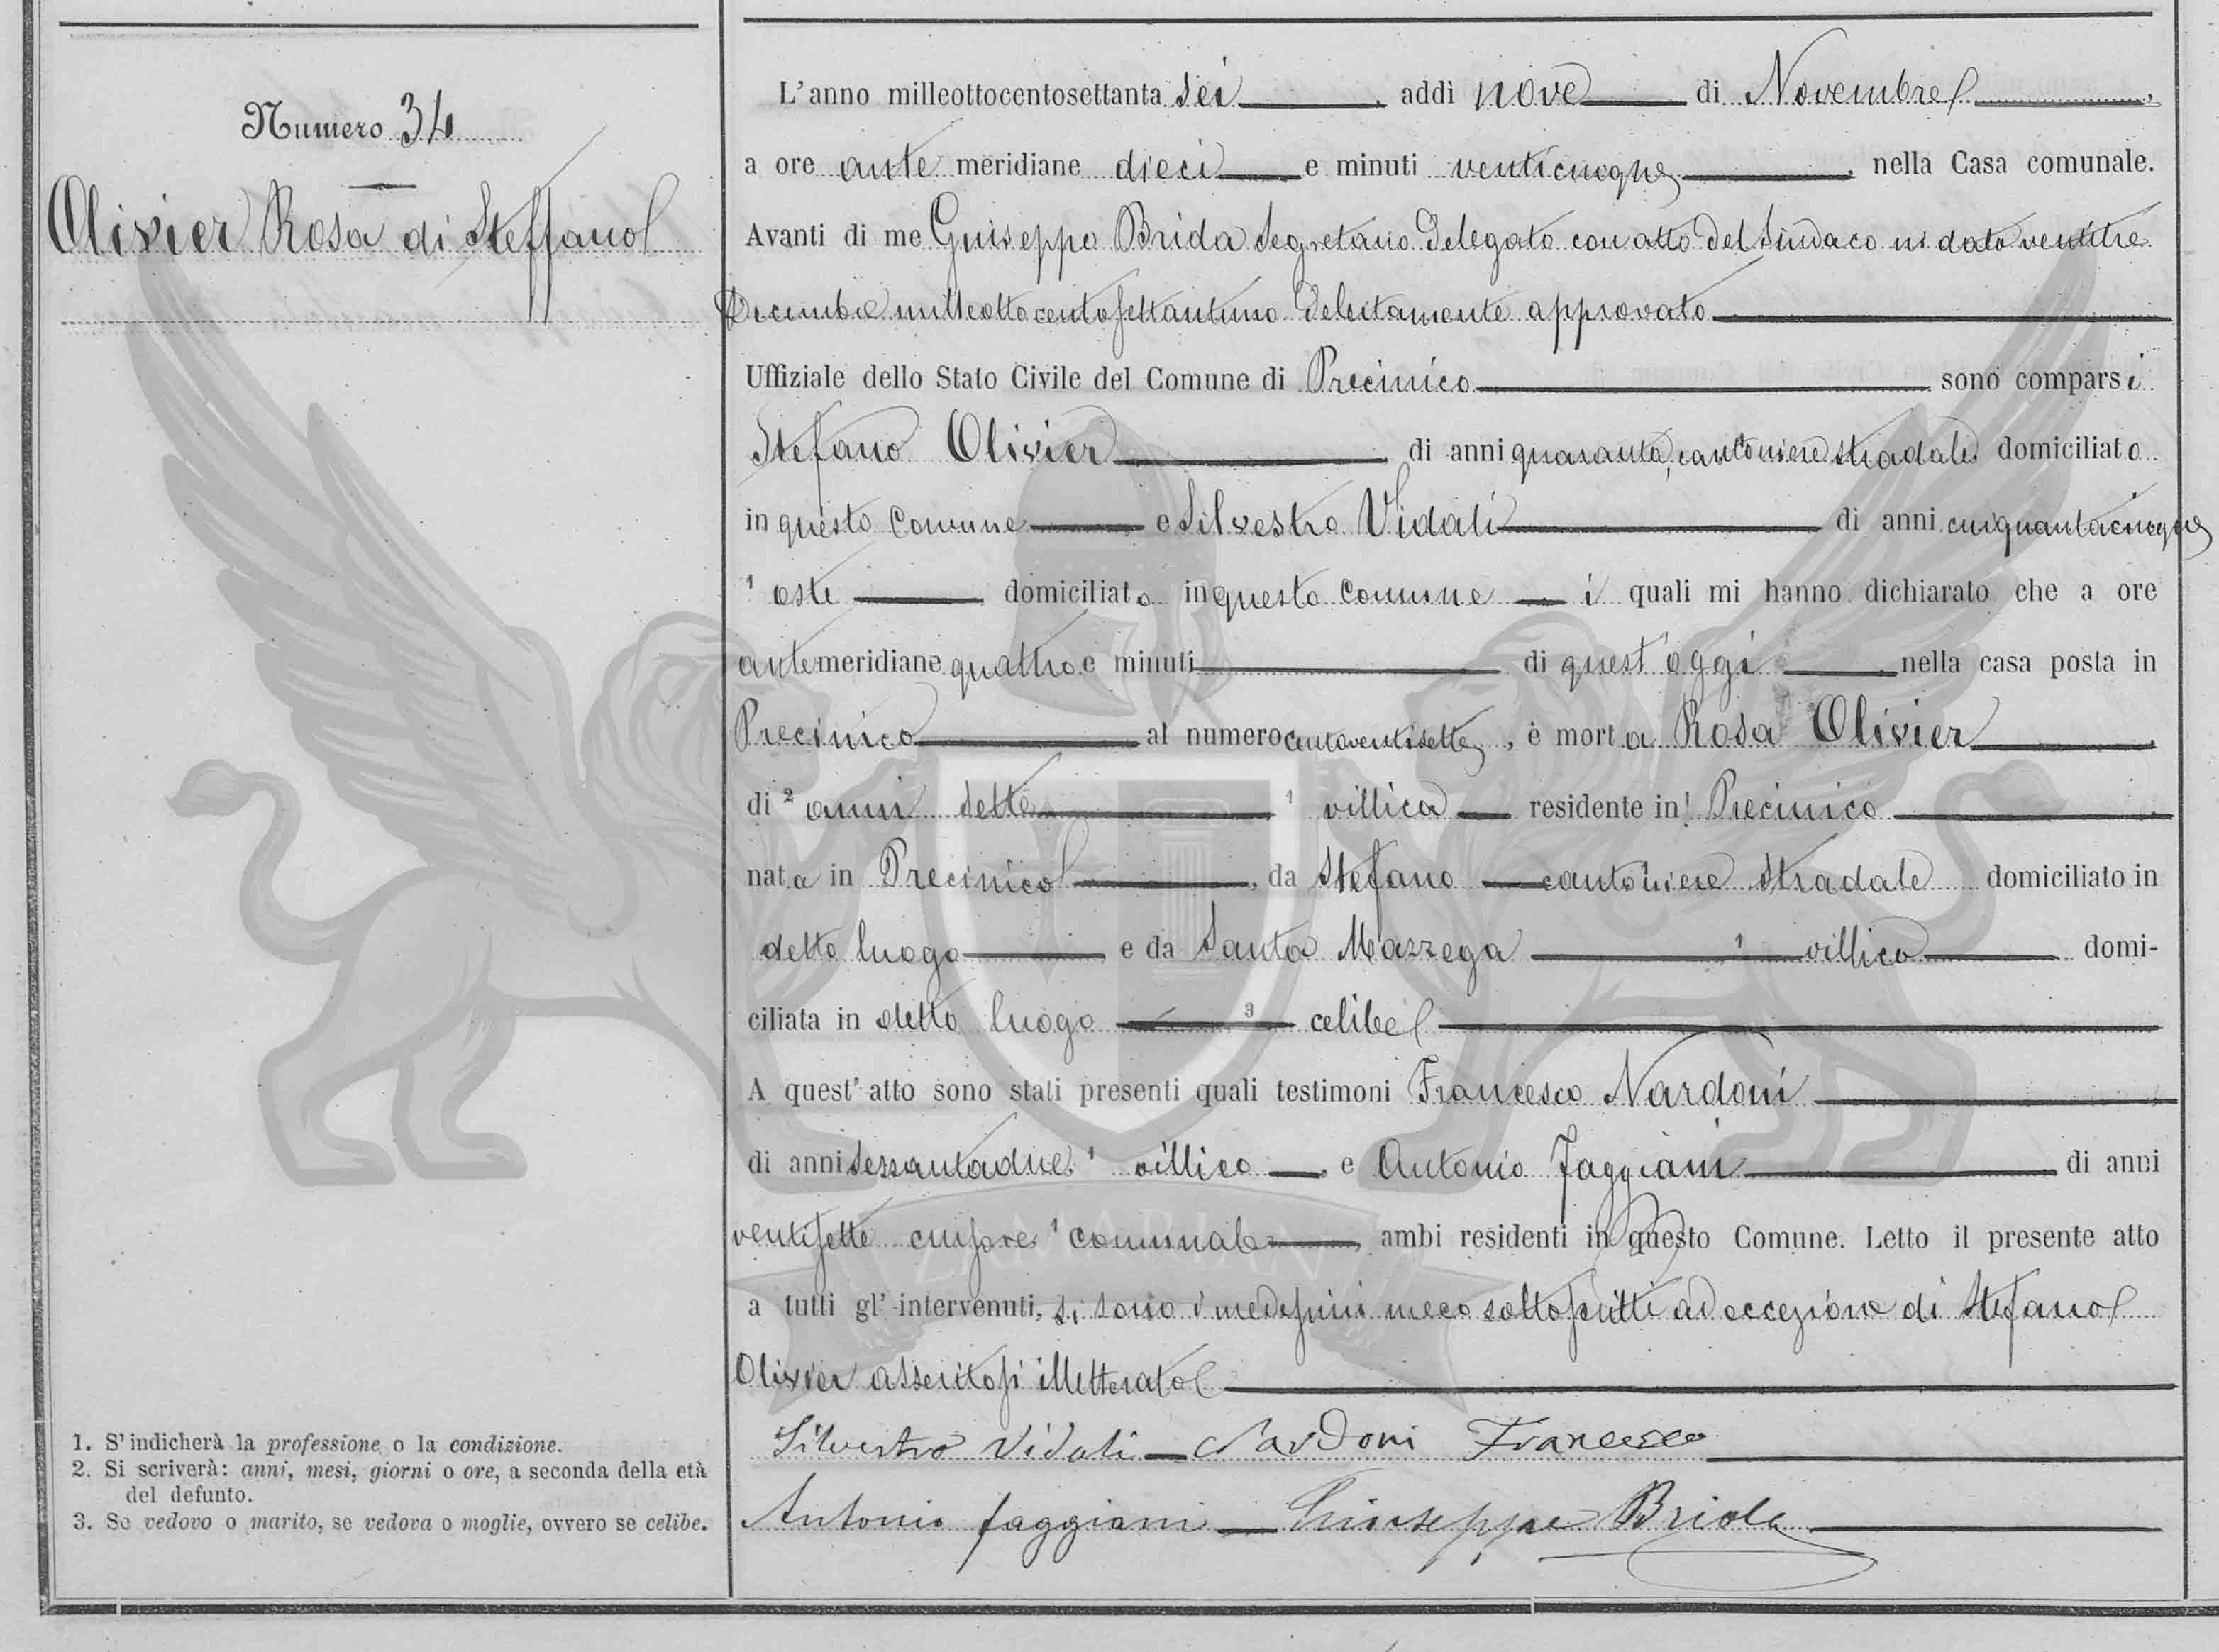 Numero 34
Olivier Rosa di Steffano
1. S'indicherà la professione o la condizione.
2. Si scriverà: anni, mesi, giorni o ore, a seconda della età
del defunto.
3. Se vedovo o marito, se vedova o moglie, ovvero se celibe.
L'anno milleottocentosettanta sei, addì nove di Novembre,
a ore ante meridiane dieci e minuti venticinque, nella Casa comunale.
Avanti di me Giuseppe Brida Segretario Delegato con atto del Sindaco in data ventitre
Decembre milleottocentosettantuno debitamente approvato
Uffiziale dello Stato Civile del Comune di Precinico sono comparsi
Stefano Olivier, di anni quaranta, cantoniere stradale domiciliato
in questo Comune e Silvestro Vidali di anni cinquantacinque
1 oste domiciliato in questo Comune i quali mi hanno dichiarato che a ore
antemeridiane quattro e minuti di quest'oggi, nella casa posta in
Precinico al numero centoventisette, è morta Rosa Olivier,
di 2 anni sette 1 villica residente in Precinico,
nata in Precinico, da Stefano cantoniere stradale domiciliato in
detto luogo e da Santa Mazzega 1 villica domi-
ciliata in detto luogo 3 celibe
A quest'atto sono stati presenti quali testimoni Francesco Nardoni,
di anni sessantadue, 1 villico, e Antonio Faggiani di anni
ventisette cursore 1 comunale, ambi residenti in questo Comune. Letto il presente atto
a tutti gl'intervenuti, si sono i medesimi meco sottoscritti ad eccezione di Stefano
Olivier asseritosi illetterato
Silvestro Vidali - Nardoni Francesco
Antonio faggiani - Giuseppe Brida
ZAMARIAN